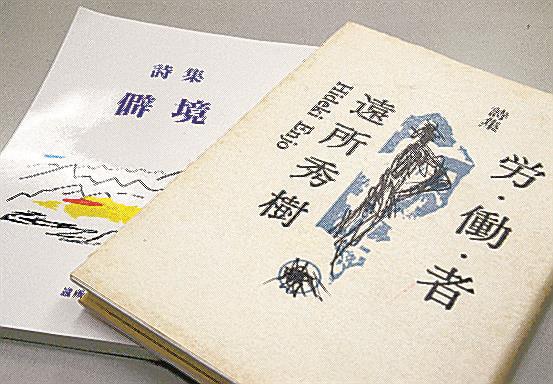 詩集
僻境
遠所
詩集
労・働・者
遠所秀樹
Hideki Enjo